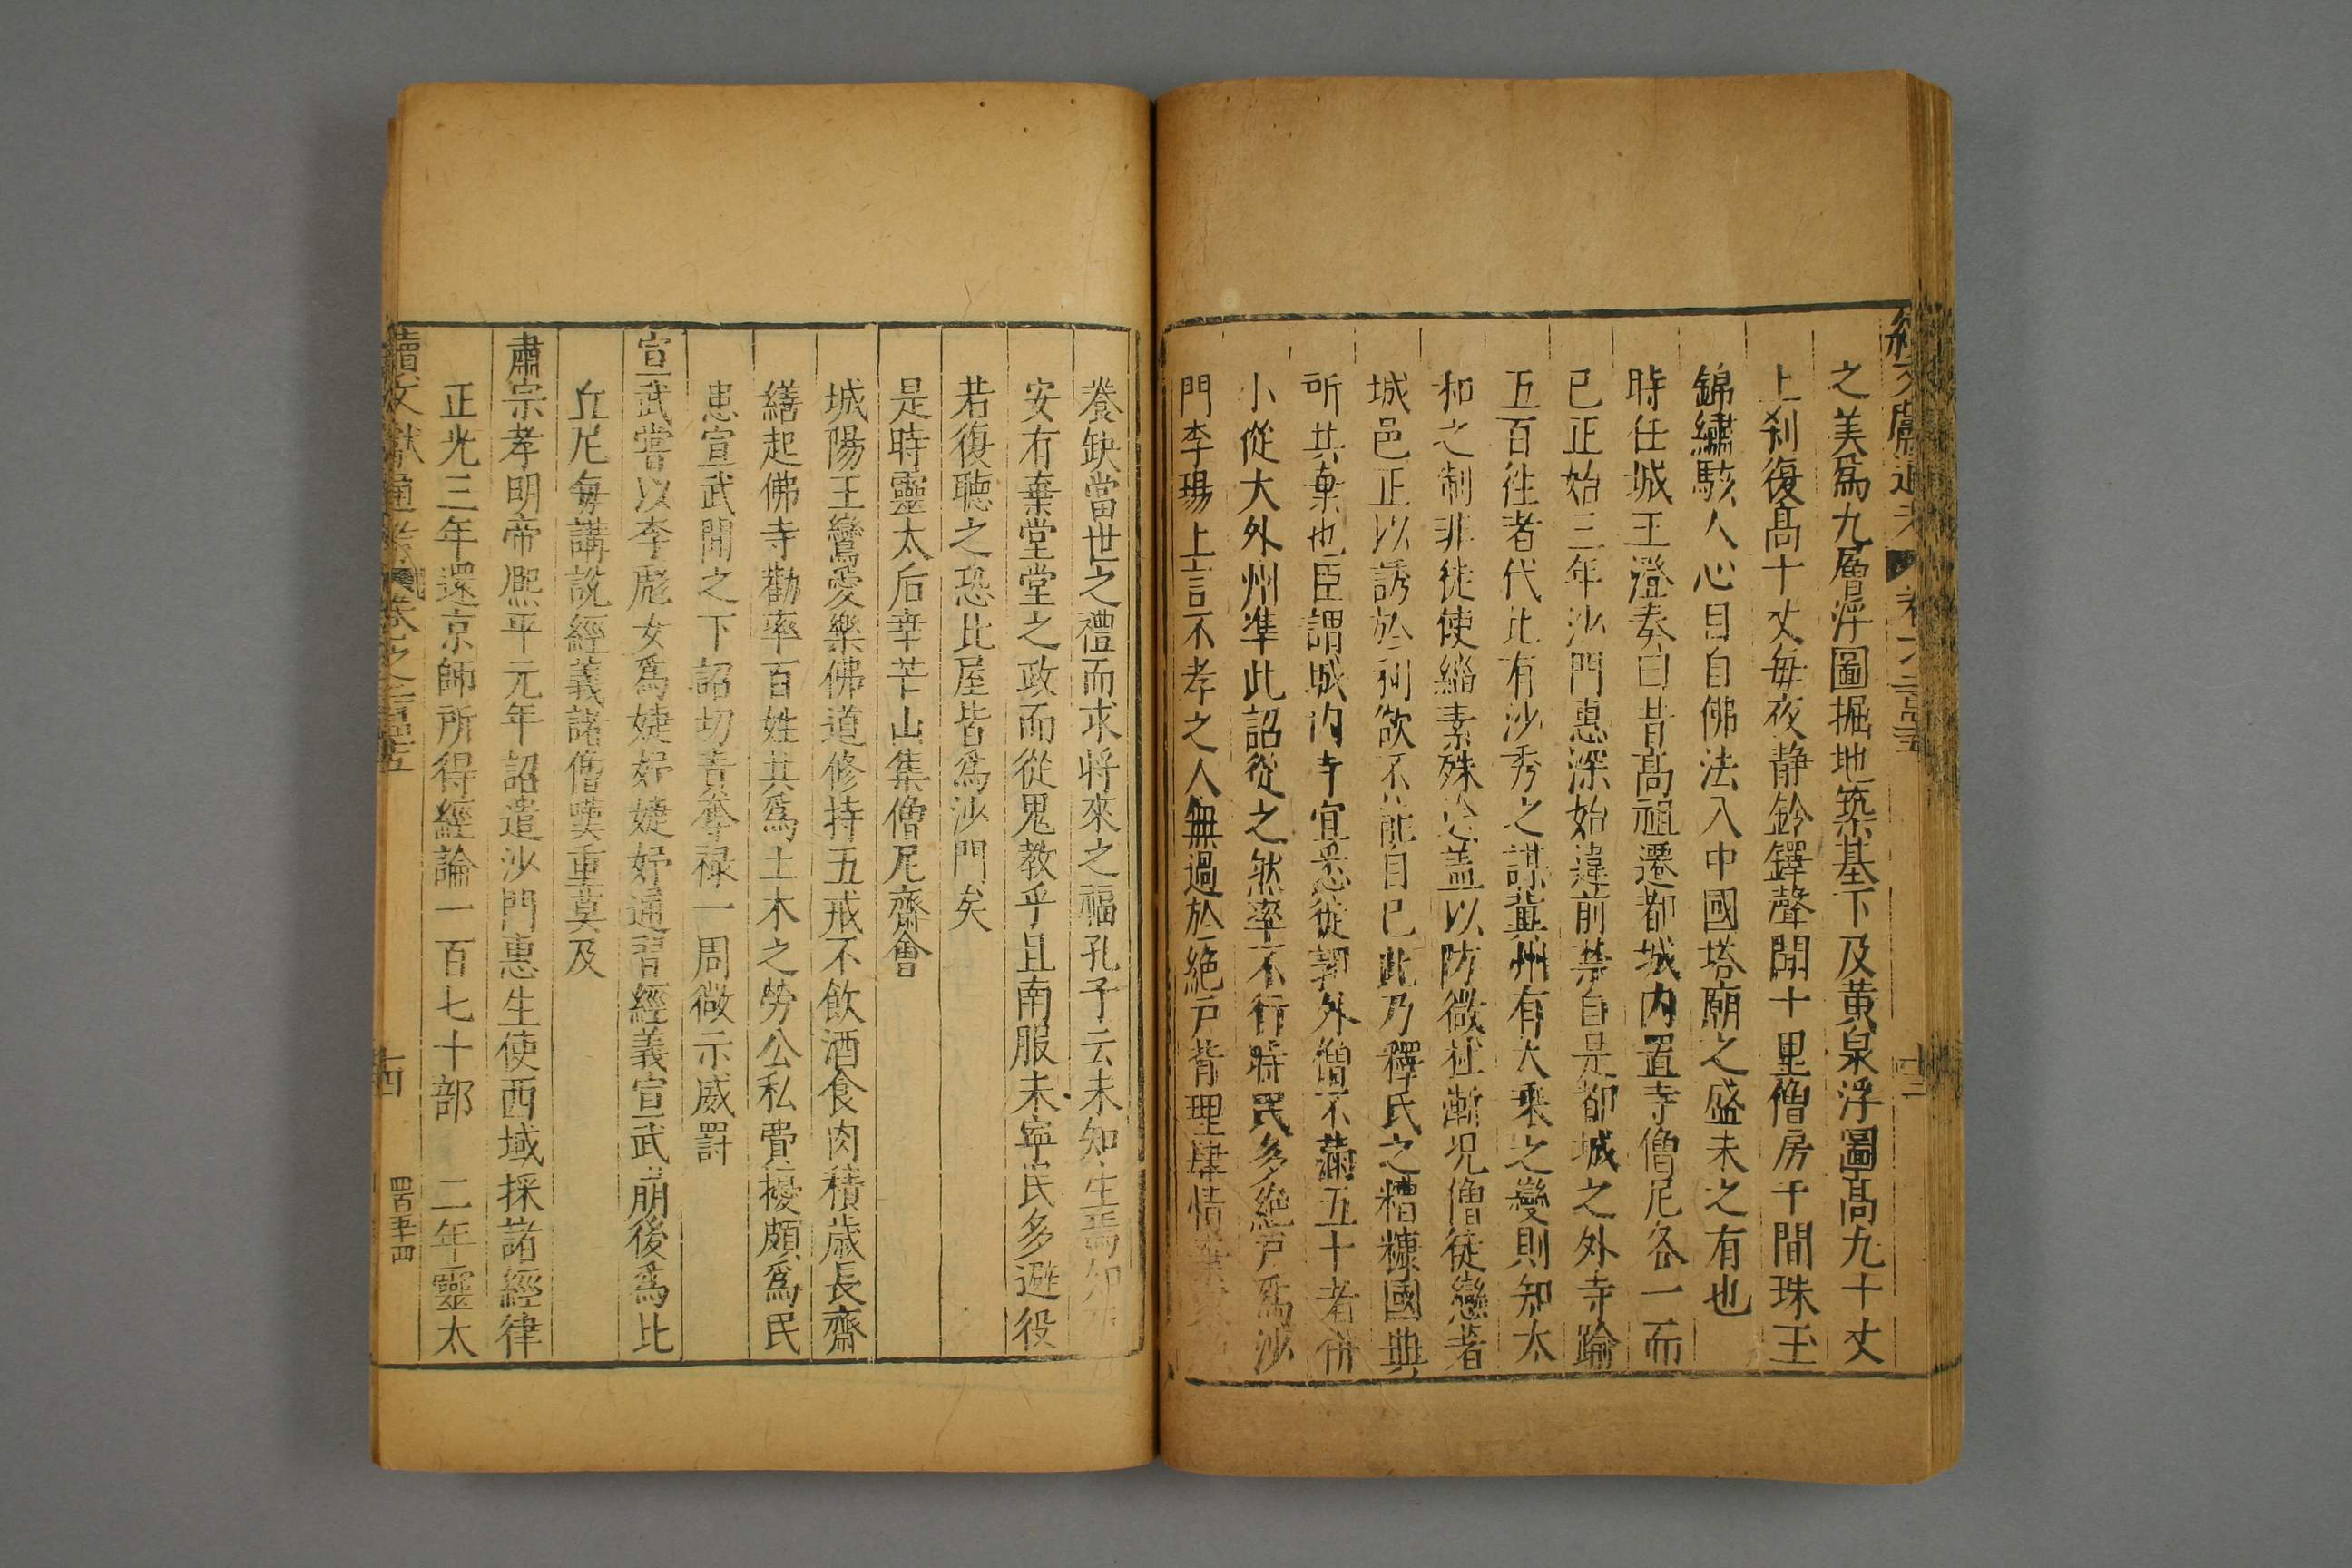 之美爲九層浮圖掘地築基下及黃泉浮圖高九十丈
上刹復高十丈每夜静鈴鐸聲聞十里僧房千間珠玉
錦繡駭人心目自佛法入中國塔廟之盛未之有也
時任城王澄奏曰昔高祖遷都城内置寺僧尼各一而
已正始三年沙門惠深始違前禁自是都城之外寺踰
五百往者代北有沙秀之謀冀州有大乘之變則知太
和之制非徒使緇素殊途盖以防微杜漸况僧徒戀著
城邑正以誘於利欲不能自已此乃釋氏之糟糠國典
所共棄也臣謂城内寺宜悉徙郭外僧不滿五十者併
小從大外州準此詔從之然率不行時民多絶戸爲沙
門李瑒上言不孝之人無過於絶戸背理肆情
養缺當世之禮而求將來之福孔子云未知生焉知
安有棄堂堂之政而從鬼教乎且南服未寧民多避役
若復聽之恐比屋皆爲沙門矣
是時靈太后幸芒山集僧尼齋會
城陽王鸞愛樂佛道修持五戒不飲酒食肉積歲長齋
繕起佛寺勸率百姓共爲土木之勞公私費擾頗爲民
患宣武聞之下詔切責奪禄一周微示威罰
宣武嘗以李彪女爲婕妤婕妤通習經義宣武崩後爲比
丘尼每講說經義諸僧嘆重莫及
肅宗孝明帝熈平元年詔遣沙門惠生使西域採諸經律
正光三年還京師所得經論一百七十部 二年靈太
續文獻通考 卷之
十四
四百五十四